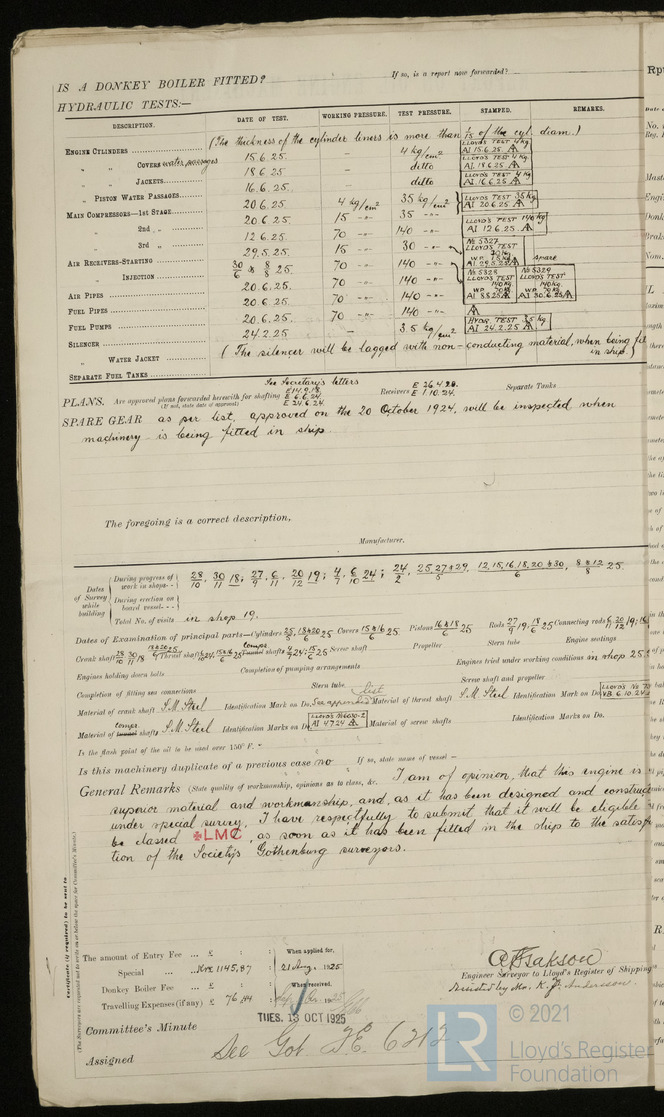 IS A DONKEY BOILER FITTED? If so, is a report now forwarded?
HYDRAULIC TESTS:—
DESCRIPTION. DATE OF TEST. WORKING PRESSURE. TEST PRESSURE. STAMPED. REMARKS.
(The thickness of the cylinder liners is more than 1/15 of the cyl. diam.)
ENGINE CYLINDERS 15.6.25. – 4 kg/cm² LLOYD'S TEST 4 kg. AI 15.6.25
" COVERS water passages 18.6.25 – ditto LLOYD'S TEST 4 kg. AI 18.6.25
" JACKETS 16.6.25. – ditto LLOYD'S TEST 4 kg AI 16.6.25
" PISTON WATER PASSAGES 20.6.25. 4 kg/cm² 35 kg/cm² LLOYD'S TEST 35 kg AI 20.6.25
MAIN COMPRESSORS—1st STAGE 20.6.25. 15 35
" 2nd " 12.6.25 70 140 LLOYD'S TEST 140 kg AI 12.6.25
" 3rd " 29.5.25. 15 30 No 5327 LLOYD'S TEST AI 29.5.25 spare
AIR RECEIVERS-STARTING 30/6 & 8/8 25. 70 140 No 5328 LLOYD'S TEST 140 kg. WP 70 kg AI 8.8.25 No 5329 LLOYD'S TEST 140 kg. WP 70 kg AI 30.6.25
" INJECTION 20.6.25. 70 140
AIR PIPES 20.6.25. 70 140
FUEL PIPES 20.6.25. 70 140
FUEL PUMPS 24.2.25 – 3.5 kg/cm² HYDR. TEST 3.5 kg AI 24.2.25
SILENCER (The silencer will be lagged with non-conducting material, when being fit
" WATER JACKET in ship.)
SEPARATE FUEL TANKS
See Secretary's letters
PLANS. Are approved plans forwarded herewith for shafting E 14.9.18. E 6.6.24. E 24.6.24. Receivers E 26.4.20. E 1.10.24. Separate Tanks
(If not, state date of approval)
SPARE GEAR as per list, approved on the 20 October 1924, will be inspected when
machinery is being fitted in ship.
The foregoing is a correct description,
Manufacturer.
Dates of Survey while building
During progress of work in shops-- 28/10, 30/11 18; 27/9, 6/11, 20/12 19; 4/7, 6/10 24; 24/2, 25, 27 & 29/5, 12, 15, 16, 18, 20 & 30/6, 8 & 12/8 25
During erection on board vessel---
Total No. of visits in shop 19.
Dates of Examination of principal parts—Cylinders 25/5, 18&20/6 25 Covers 15&16/6 25 Pistons 16&18/6 25 Rods 27/9 19; 18/6 25 Connecting rods 6/11, 20/12 19;
Crank shaft 28/10 30/11 18 Thrust shaft Comps shafts 4/7 24; 15/6 25 Screw shaft Propeller Stern tube Engine seatings
Engines holding down bolts Completion of pumping arrangements Engines tried under working conditions in shop
Completion of fitting sea connections Stern tube Screw shaft and propeller
Material of crank shaft S.M. Steel Identification Mark on Do. See appended list Material of thrust shaft S.M. Steel Identification Mark on Do.
Material of comps. shafts S.M. Steel Identification Marks on Do. AI 4.7.24 Material of screw shafts Identification Marks on Do.
Is the flash point of the oil to be used over 150° F.
Is this machinery duplicate of a previous case no If so, state name of vessel —
General Remarks (State quality of workmanship, opinions as to class, &c. I am of opinion, that this engine is
superior material and workmanship, and, as it has been designed and construc
under special survey, I have respectfully to submit that it will be eligible
be classed ✠LMC, as soon as it has been fitted in the ship to the satisf
tion of the Society's Gothenburg surveyors.
Certificate (if required) to be sent to
(The Surveyors are requested not to write on or below the space for Committee's Minute.)
The amount of Entry Fee ... £ : : When applied for,
Special ... Kr 1145,87 21 Aug. 1925
Donkey Boiler Fee ... £ : : When received,
Travelling Expenses (if any) £ 76.44
A. Isakson
Engineer Surveyor to Lloyd's Register of Shipping
Assisted by Mr. K. J. Andersson.
TUES. 13 OCT 1925
Committee's Minute
Assigned See Got. F.E. 6212
© 2021
LR
Lloyd's Register
Foundation